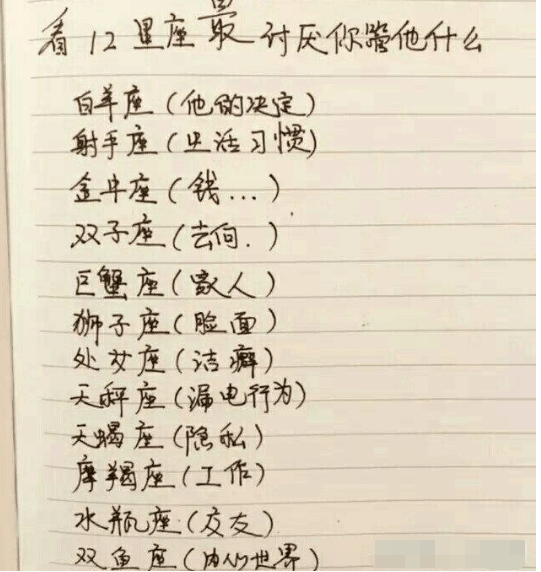 看12星座最讨厌你管他什么
白羊座(他的决定)
射手座(生活习惯)
金牛座(钱...)
双子座(去向.)
巨蟹座(家人)
狮子座(脸面)
处女座(洁癖)
天秤座(漏电行为)
天蝎座(隐私)
摩羯座(工作)
水瓶座(交友)
双鱼座(内心世界)